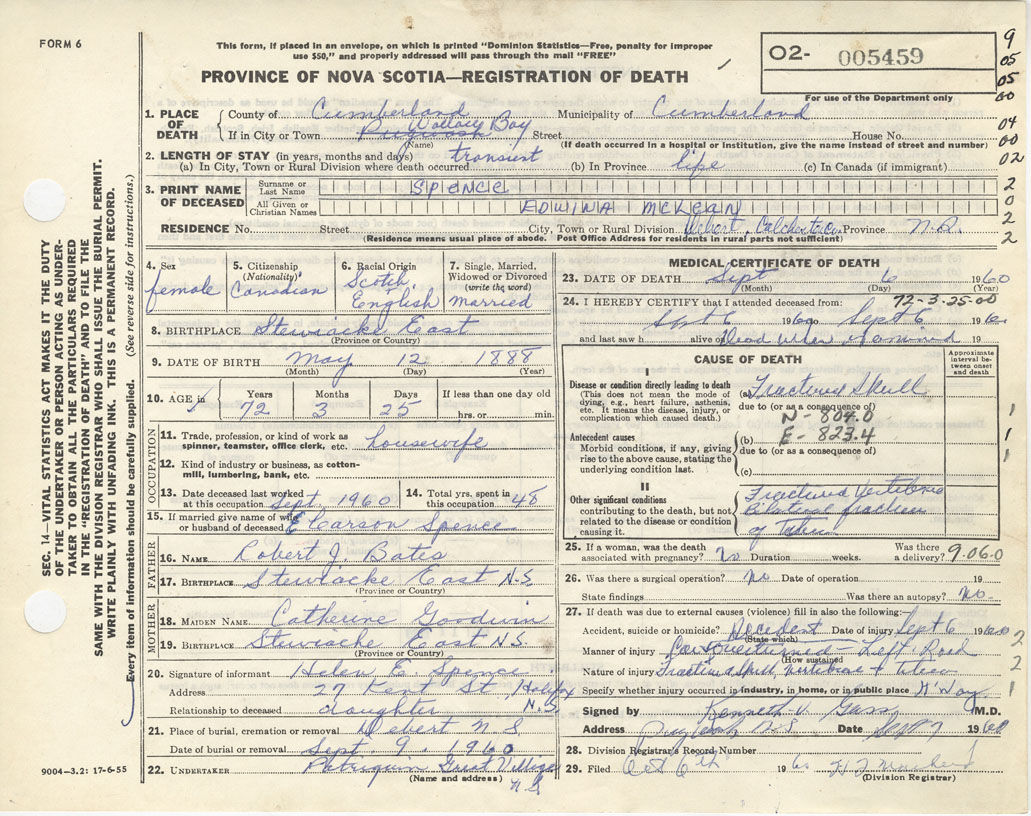 FORM 6
This form, if placed in an envelope, on which is printed "Dominion Statistics—Free, penalty for improper
use $50," and properly addressed will pass through the mail "FREE"
PROVINCE OF NOVA SCOTIA—REGISTRATION OF DEATH
02- 005459
For use of the Department only
9
05
05
00
04
00
02
2
0
2
2
SEC. 14—VITAL STATISTICS ACT MAKES IT THE DUTY
OF THE UNDERTAKER OR PERSON ACTING AS UNDER-
TAKER TO OBTAIN ALL THE PARTICULARS REQUIRED
IN THE "REGISTRATION OF DEATH" AND TO FILE THE
SAME WITH THE DIVISION REGISTRAR WHO SHALL ISSUE THE BURIAL PERMIT.
WRITE PLAINLY WITH UNFADING INK. THIS IS A PERMANENT RECORD.
Every item of information should be carefully supplied. (See reverse side for instructions.)
1. PLACE OF DEATH County of Cumberland Municipality of Cumberland
If in City or Town Pugwash Wallace Bay Street House No.
(Name) (If death occurred in a hospital or institution, give the name instead of street and number)
2. LENGTH OF STAY (in years, months and days)
(a) In City, Town or Rural Division where death occurred transient (b) In Province life (c) In Canada (if immigrant)
3. PRINT NAME OF DECEASED
Surname or Last Name SPENCE
All Given or Christian Names EDWINA MCLEAN
RESIDENCE No. Street City, Town or Rural Division Debert, Colchester Co. Province N.S.
(Residence means usual place of abode. Post Office Address for residents in rural parts not sufficient)
4. Sex female
5. Citizenship (Nationality) Canadian
6. Racial Origin Scotch, English
7. Single, Married, Widowed or Divorced (write the word) married
8. BIRTHPLACE Stewiacke East
(Province or Country)
9. DATE OF BIRTH May 12 1888
(Month) (Day) (Year)
10. AGE in Years 72 Months 3 Days 25 If less than one day
hrs. or min.
OCCUPATION
11. Trade, profession, or kind of work as spinner, teamster, office clerk, etc. housewife
12. Kind of industry or business, as cotton-mill, lumbering, bank, etc.
13. Date deceased last worked at this occupation Sept. 1960
14. Total yrs. spent in this occupation 48
15. If married give name of wife or husband of deceased Clarson Spence
FATHER
16. NAME Robert J. Bates
17. BIRTHPLACE Stewiacke East N.S
(Province or Country)
MOTHER
18. MAIDEN NAME Catherine Goodwin
19. BIRTHPLACE Stewiacke East N.S
(Province or Country)
20. Signature of informant Helen E. Spence
Address 27 Kent St, Halifax N.S
Relationship to deceased daughter
21. Place of burial, cremation or removal Debert N.S
Date of burial or removal Sept 9. 1960
22. UNDERTAKER Patriquin Great Village N.S
(Name and address)
9004—3.2: 17-6-55
MEDICAL CERTIFICATE OF DEATH
23. DATE OF DEATH Sept 6 1960
(Month) (Day) (Year)
24. I HEREBY CERTIFY that I attended deceased from: 72-3-25-00
Sept 6 1960 to Sept 6 1960
and last saw h alive on Dead when examined 19
CAUSE OF DEATH
Approximate interval between onset and death
I
Disease or condition directly leading to death
(This does not mean the mode of dying, e.g., heart failure, asthenia, etc. It means the disease, injury, or complication which caused death.)
(a) Fractured Skull
due to (or as a consequence of)
N-804.0
E-823.4
1
1
1
Antecedent causes
Morbid conditions, if any, giving rise to the above cause, stating the underlying condition last.
(b)
due to (or as a consequence of)
(c)
II
Other significant conditions contributing to the death, but not related to the disease or condition causing it.
Fractured Vertebrae
Bilateral fracture
of
25. If a woman, was the death associated with pregnancy? No Duration weeks. Was there a delivery? 9.06.0
26. Was there a surgical operation? No Date of operation 19
State findings Was there an autopsy? No.
27. If death was due to external causes (violence) fill in also the following:—
Accident, suicide or homicide? Accident Date of injury Sept 6 1960
(State which)
Manner of injury Car overturned - Left Road
(How sustained)
Nature of injury Fractured skull, vertebrae +
Specify whether injury occurred in industry, in home, or in public place H'Way
2
2
1
Signed by Kenneth V. Gass M.D.
Address Pugwash N.S. Date Sept 7 1960
28. Division Registrar's Record Number
29. Filed Oct 6th 1960
(Division Registrar)